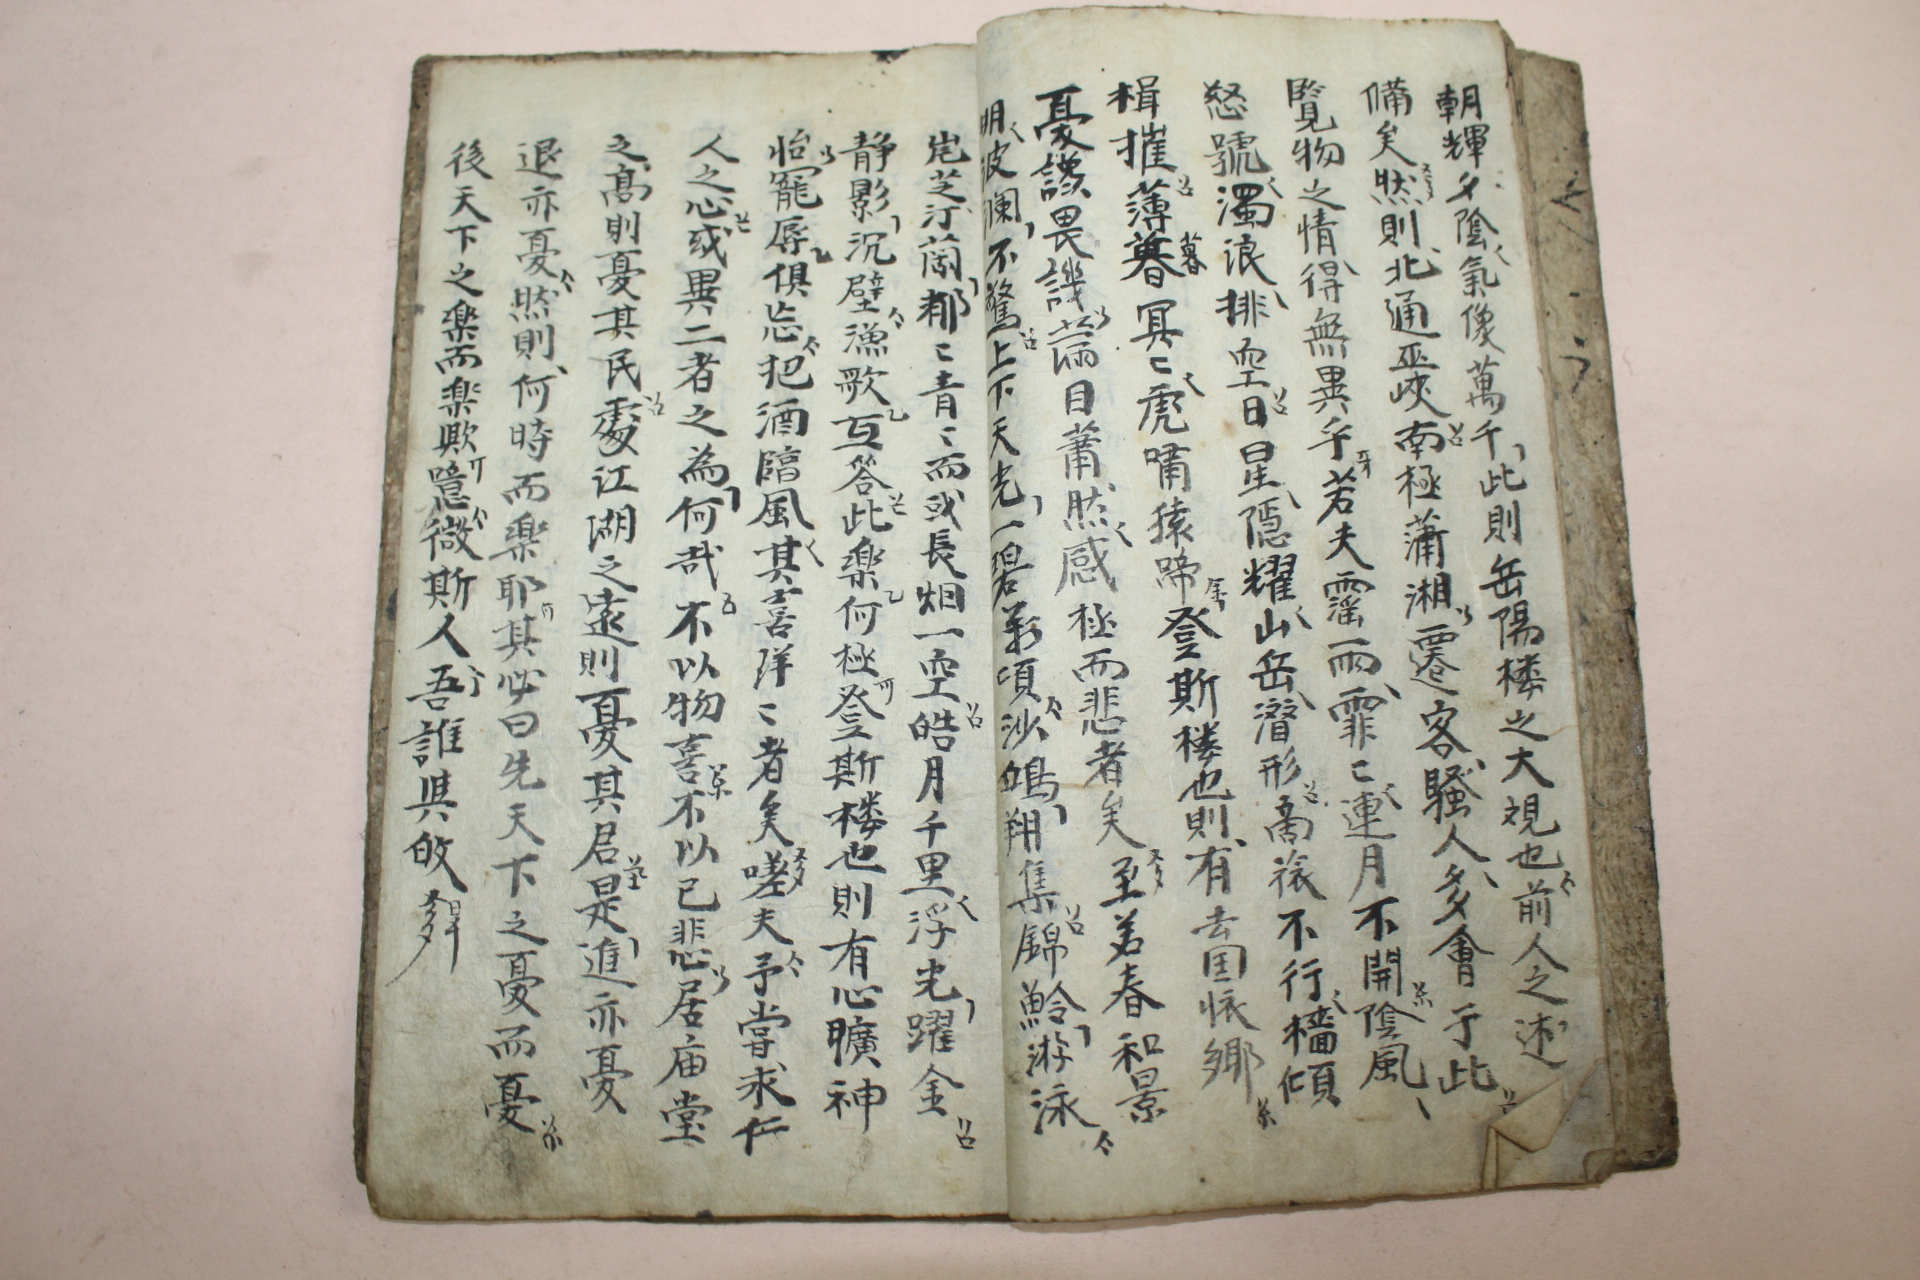 朝輝夕陰氣像萬千此則岳陽楼之大観也前人之述
備矣然則北通巫峽南極瀟湘遷客騷人多會于此
覽物之情得無異乎若夫霪雨霏〻連月不開陰風
怒號濁浪排空日星隱耀山岳潛形商旅不行檣傾
楫摧薄暮冥〻虎嘯猿啼登斯楼也則有去国懷鄉
憂讒畏譏滿目蕭然感極而悲者矣至若春和景
明波瀾不驚上下天光一碧萬頃沙鷗翔集錦鱗游泳
岸芷汀蘭郁〻青〻而或長烟一空皓月千里浮光躍金
静影沉璧漁歌互答此楽何極登斯楼也則有心曠神
怡寵辱俱忘把酒臨風其喜洋〻者矣嗟夫予嘗求仁
人之心或異二者之為何哉不以物喜不以己悲居庙堂
之高則憂其民處江湖之遠則憂其君是進亦憂
退亦憂然則何時而楽耶其必曰先天下之憂而憂
後天下之楽而楽歟噫微斯人吾誰與歸